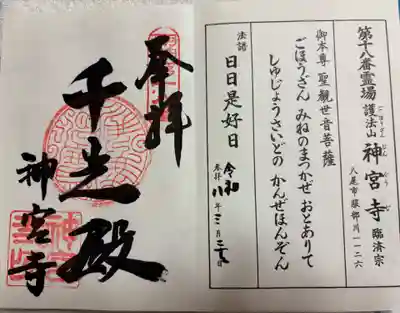 第十八番霊場 護法山 神宮寺 臨済宗
八尾市服部川一一二六
御本尊 聖観世音菩薩
ごほうざん みねのまつかぜ おとありて
しゅじょうさいどの かんぜほんぞん
法語 日日是好日
令和八年三月二十九日
参拝
奉拝
千光殿
神宮寺